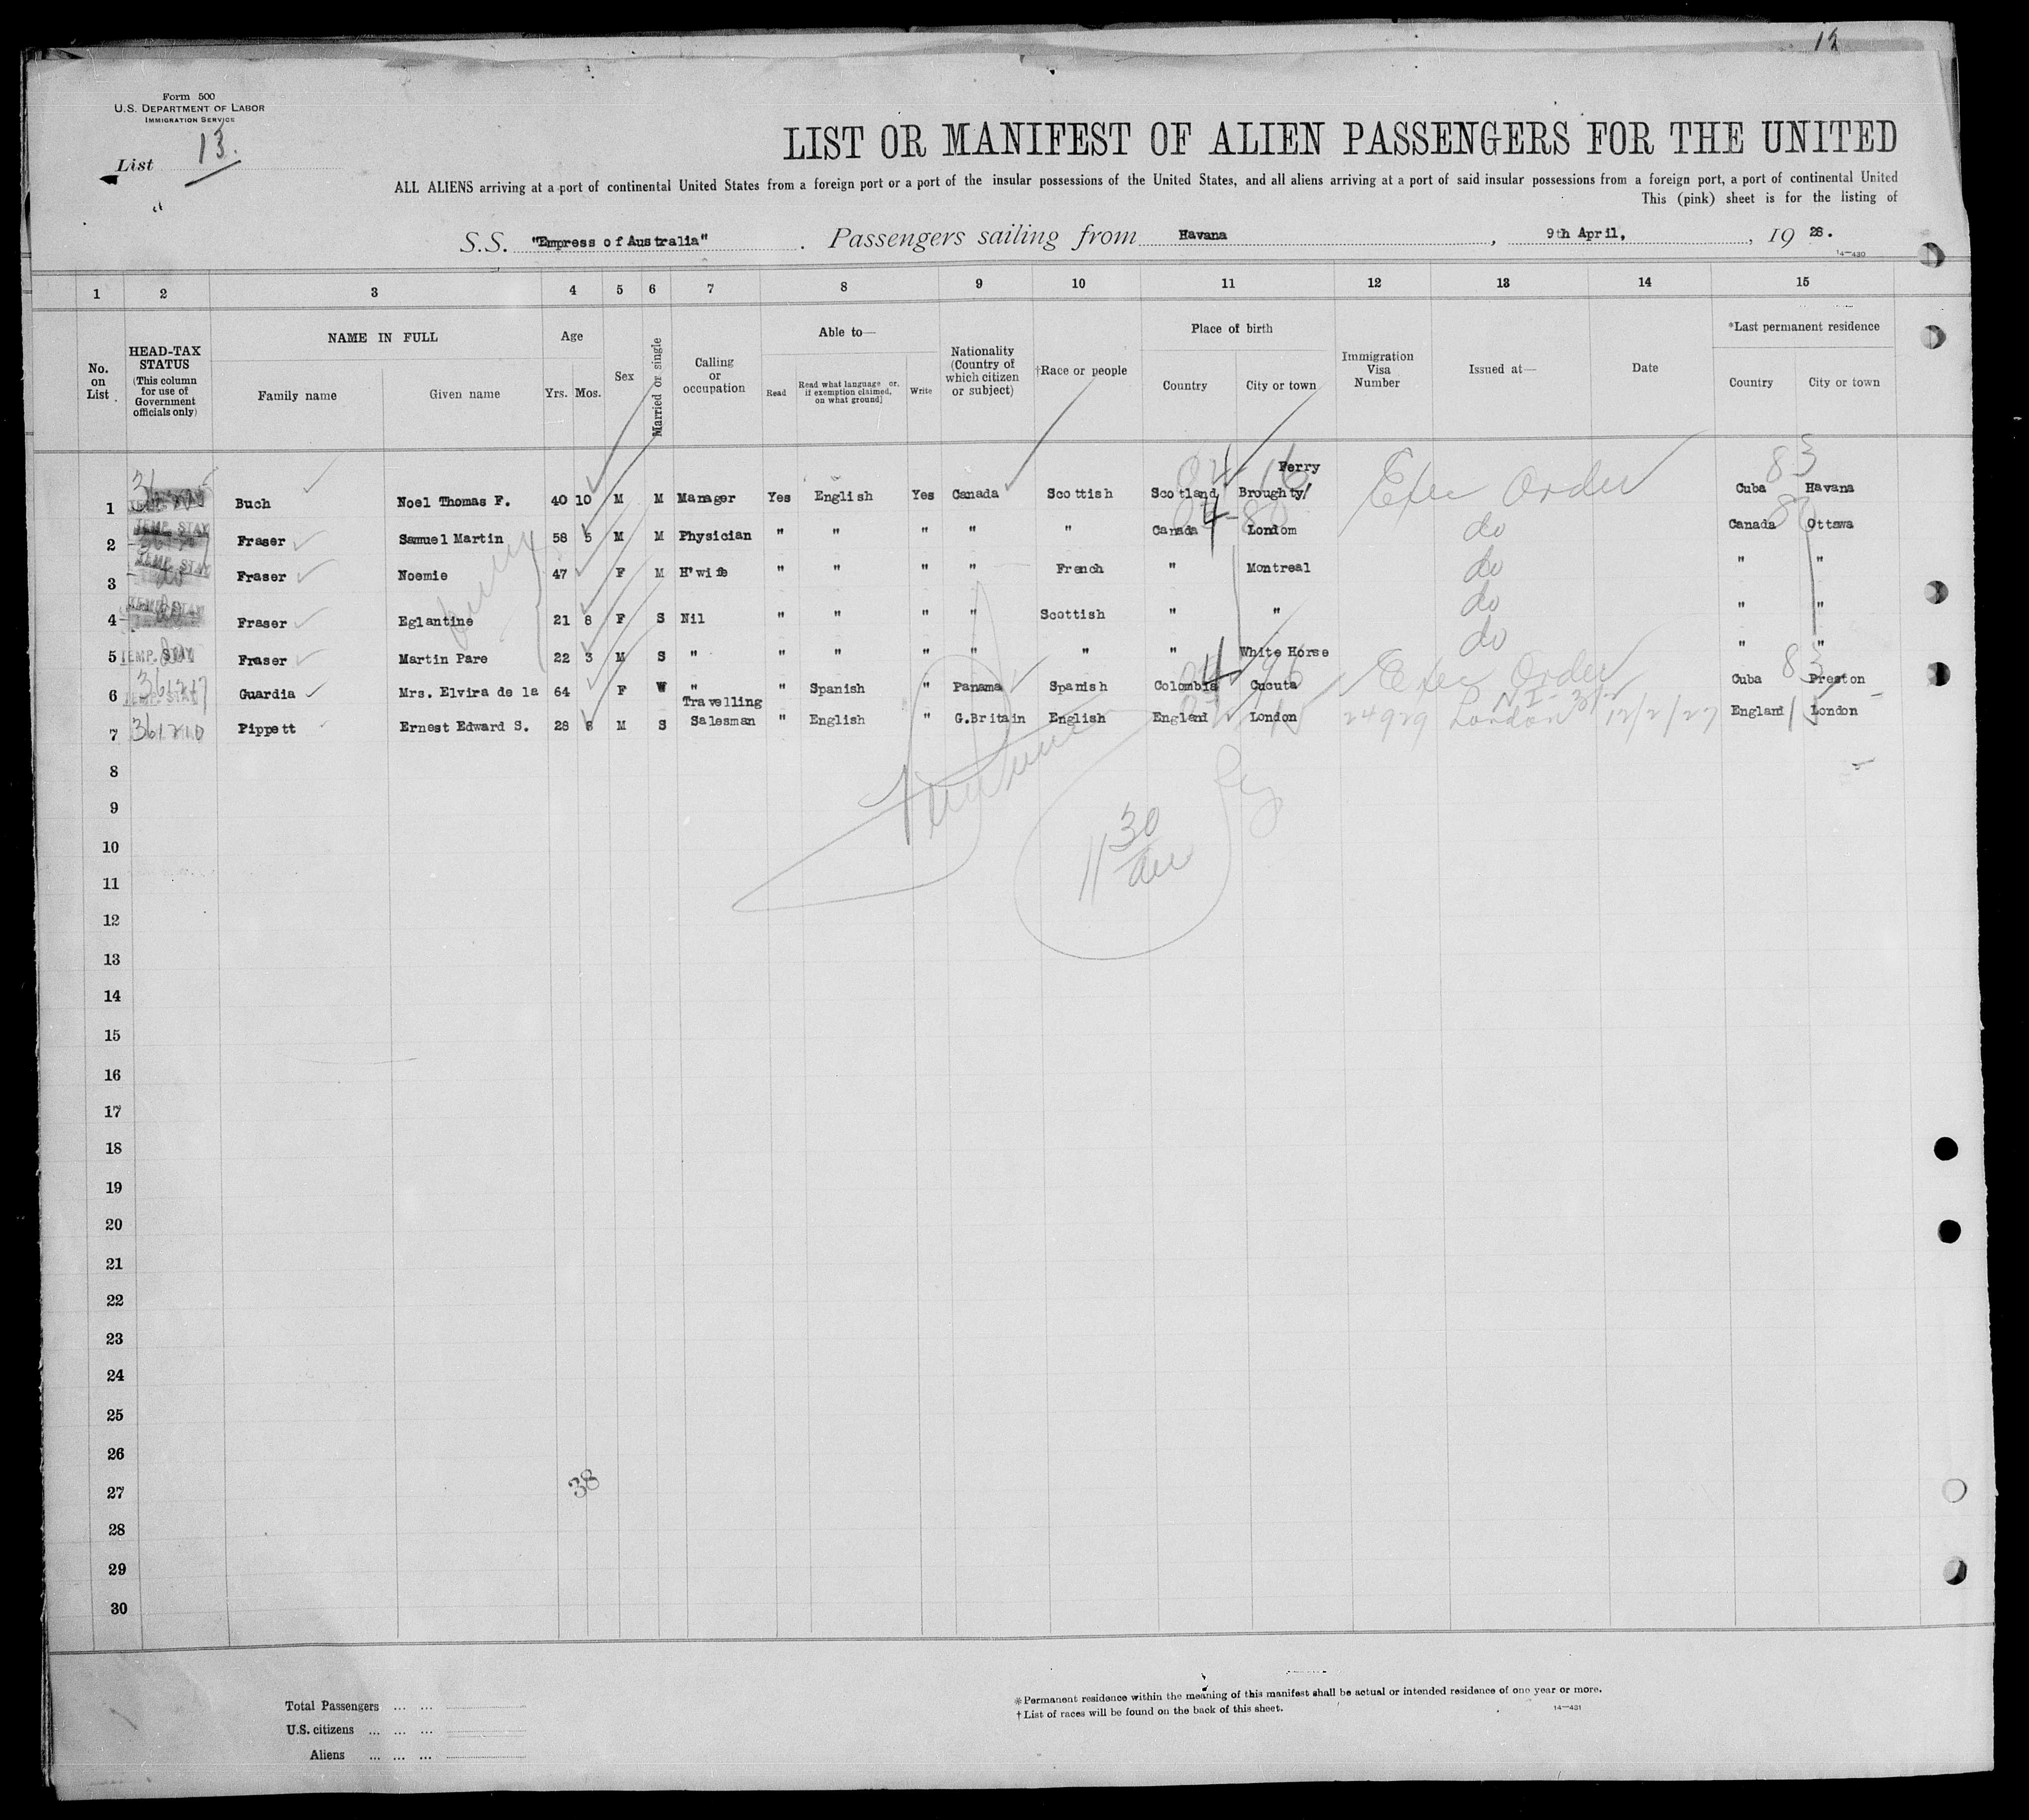 12
Form 500
U.S. DEPARTMENT OF LABOR
IMMIGRATION SERVICE
List 13.
LIST OR MANIFEST OF ALIEN PASSENGERS FOR THE UNITED
ALL ALIENS arriving at a port of continental United States from a foreign port or a port of the insular possessions of the United States, and all aliens arriving at a port of said insular possessions from a foreign port, a port of continental United
This (pink) sheet is for the listing of
S.S. "Empress of Australia" . Passengers sailing from Havana , 9th April, , 19 28.
14—430
1 2 3 4 5 6 7 8 9 10 11 12 13 14 15
No. on List. HEAD-TAX STATUS (This column for use of Government officials only) NAME IN FULL Family name Given name Age Yrs. Mos. Sex Married or single Calling or occupation Able to— Read Read what language or, if exemption claimed, on what ground] Write Nationality (Country of which citizen or subject) †Race or people Place of birth Country City or town Immigration Visa Number Issued at— Date *Last permanent residence Country City or town
1 Buch Noel Thomas F. 40 10 M M Manager Yes English Yes Canada Scottish Scotland Broughty/ Ferry Exec Order Cuba 83 Havana
2 TEMP. STAY Fraser Samuel Martin 58 5 M M Physician " " " " " Canada London do Canada Ottawa
3 TEMP. STAY Fraser Noemie 47 F M H'wife " " " " French " Montreal do " "
4 Fraser Eglantine 21 8 F S Nil " " " " Scottish " " do " "
5 TEMP. STAY Fraser Martin Pare 22 3 M S " " " " " " " White Horse do " "
6 361217 TEMP. STAY Guardia Mrs. Elvira de la 64 F W " " Spanish " Panama Spanish Colombia Cucuta Exec Order Cuba 83 Preston
7 361210 Pippett Ernest Edward S. 28 8 M S Travelling Salesman " English " G.Britain English England London 24929 London 12/2/27 England London
8
9
10
11 30
am
11
12
13
14
15
16
17
18
19
20
21
22
23
24
25
26
27
38
28
29
30
Total Passengers ... ...
U.S. citizens ... ... ...
Aliens ... ... ...
*Permanent residence within the meaning of this manifest shall be actual or intended residence of one year or more.
†List of races will be found on the back of this sheet.
14—431